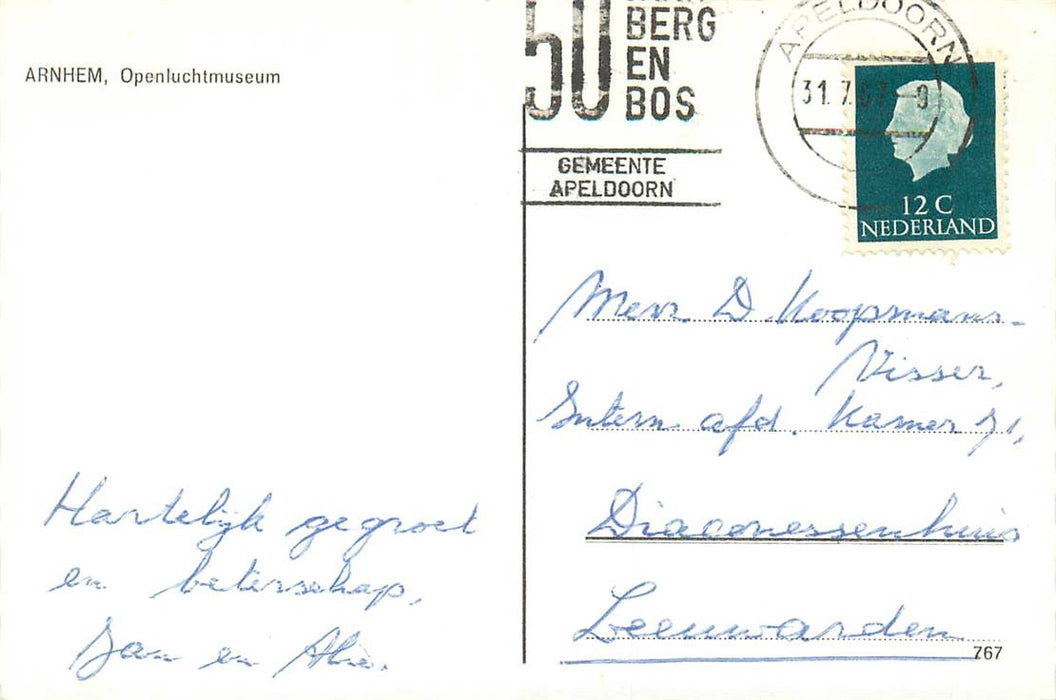 ARNHEM, Openluchtmuseum
50
BERG
EN
BOS
GEMEENTE
APELDOORN
APELDOORN
31.7.
12 C
NEDERLAND
Mevr. D. Koopmans-
Visser,
Intern afd. Kamer 71,
Diaconessenhuis
Leeuwarden
767
Hartelijk gegroet
en beterschap,
Jan en